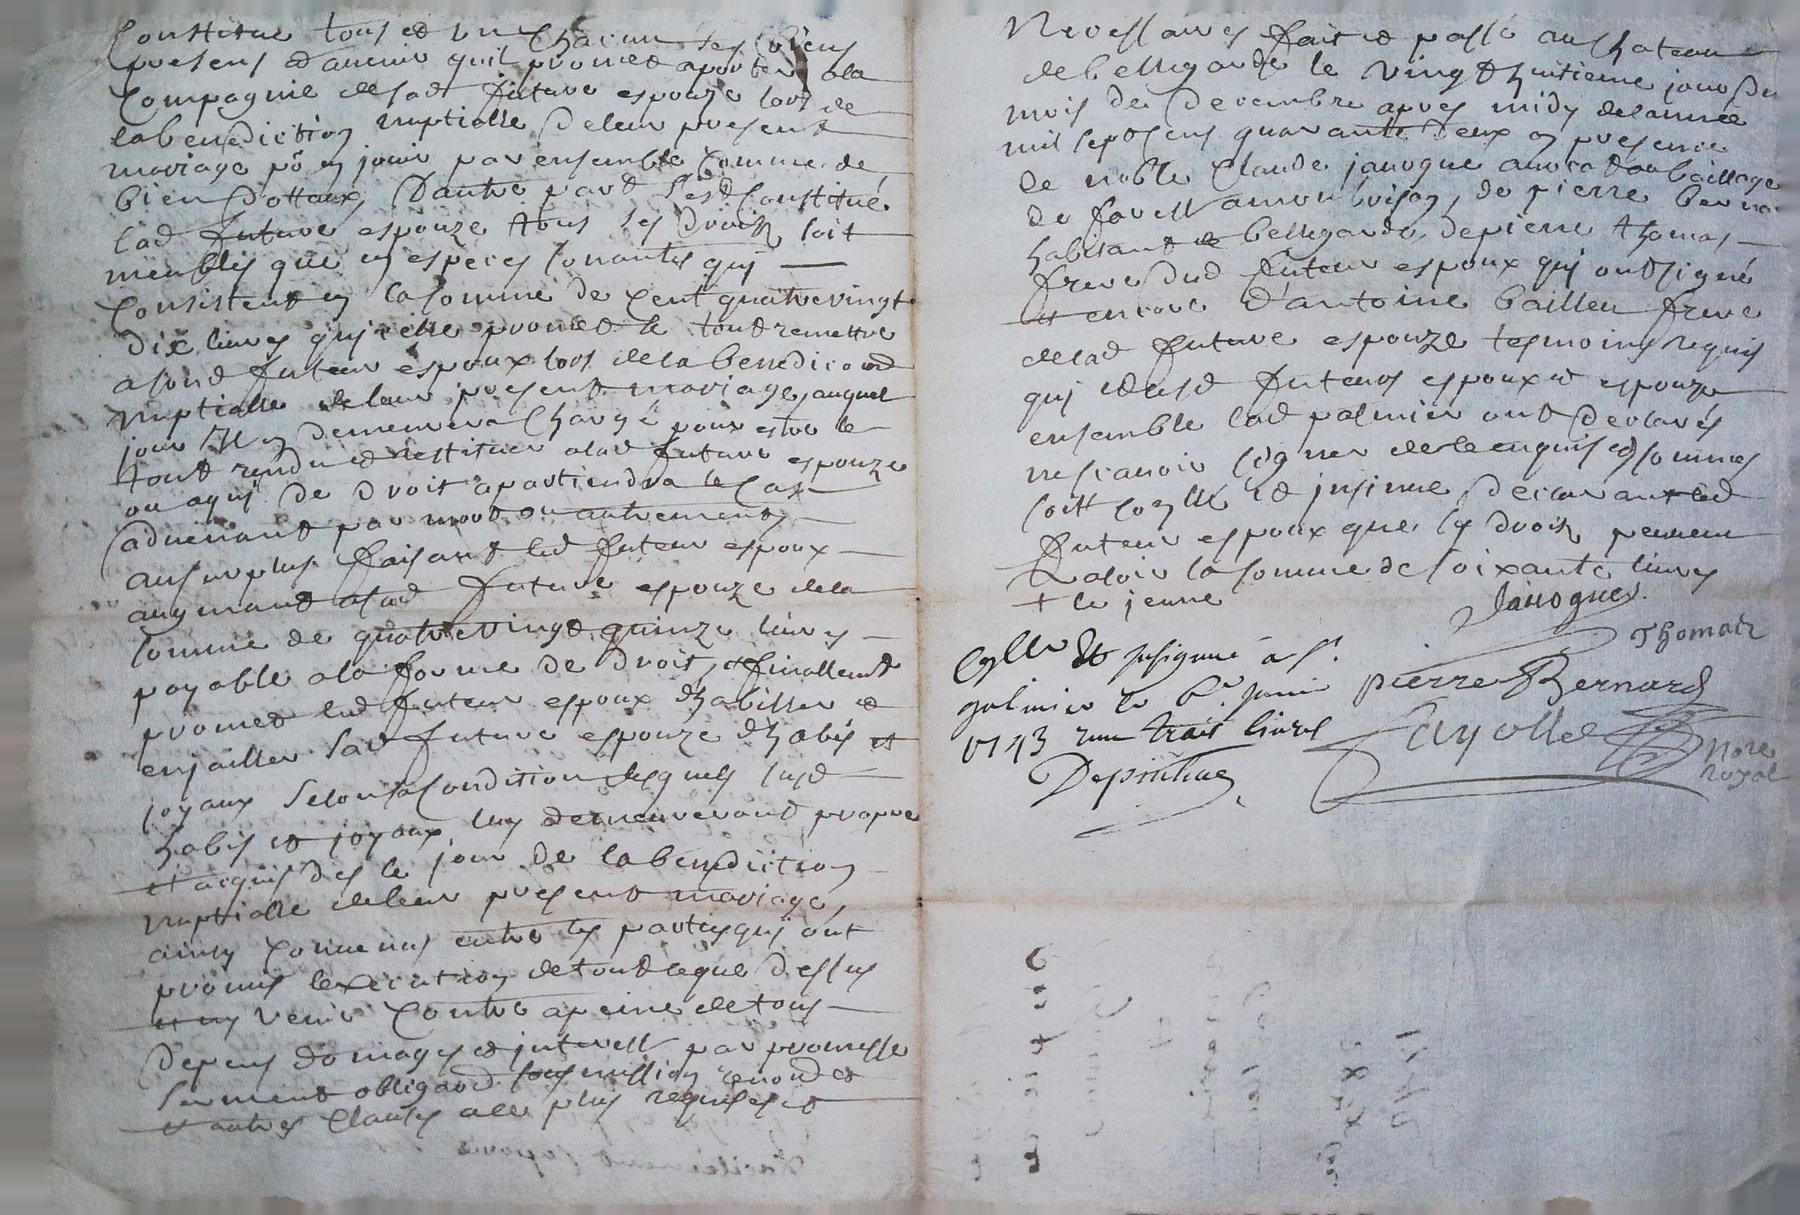 Constitue tous et un chacun ses biens
presens et avenir quil promet aporter a la
Compagnie de sad future espouze lors de
la benediction nuptialle de leur present
mariage po en jouir par ensemble comme de
bien dottaux, Dautre part sest Constitué
lad future espouze tous ses droits soit
meubles que en especes sonantes qui
Consistent en la somme de Cent quatre vingt
dix livres qu'icelle promet le tout remettre
a sond futeur espoux lors de la benedicon
nuptialle de leur present mariage, auquel
jour il en demeurera Chargé pour estre le
tout rendu et restituer a lad future espouze
ou a qui de droit apartiendra le cas
advenant par mort ou autrement,
au surplus faisant led futeur espoux
augment a sad future espouze de la
somme de quatre vingt quinze livres
payable a la forme de droit, et finallemt
promet led futeur espoux d'habiller et
enjailler sad future espouze d'habis et
joyaux selon sa Condition lesquels susd
habis et joyaux luy demeureront propre
et acquis des le jour de la benediction
nuptialle de leur present mariage,
ainsy Convenus entre les parties qui ont
promis lexecution de tout ceque dessus
et ny venir Contre a peine de tous
depens domages et interest par promesse
serment obligaon soumission renond et
et autres clauses alle plus requises et
Necessaires fait et passé au chateau
de bellegarde le vingt huitieme jour du
mois de Decembre apres midy de lannee
mil sept sens quarante deux en presence
de noble Claude janogue avocat au bailliage
de forest a monbrison, de pierre berna
habitant de bellegarde, de pierre thomas
frere dud futeur espoux qui ont signé
et encore d'antoine bailleu frere
de lad future espouze tesmoins requis
qui et lesd futeurs espoux et espouze
ensemble lad palmier ont declarés
ne scavoir signer de ce enquis et sommes
soit conllé et insinué declarant led
futeur espoux que ses droits peuvent
valoir la somme de soixante livres
+ le jeune
Janogue
Thomatz
Conllé et insignué a st
galmier le 6er janvie
1743 recu trois livres
pierre Bernard
Fayolle
Nore
royal